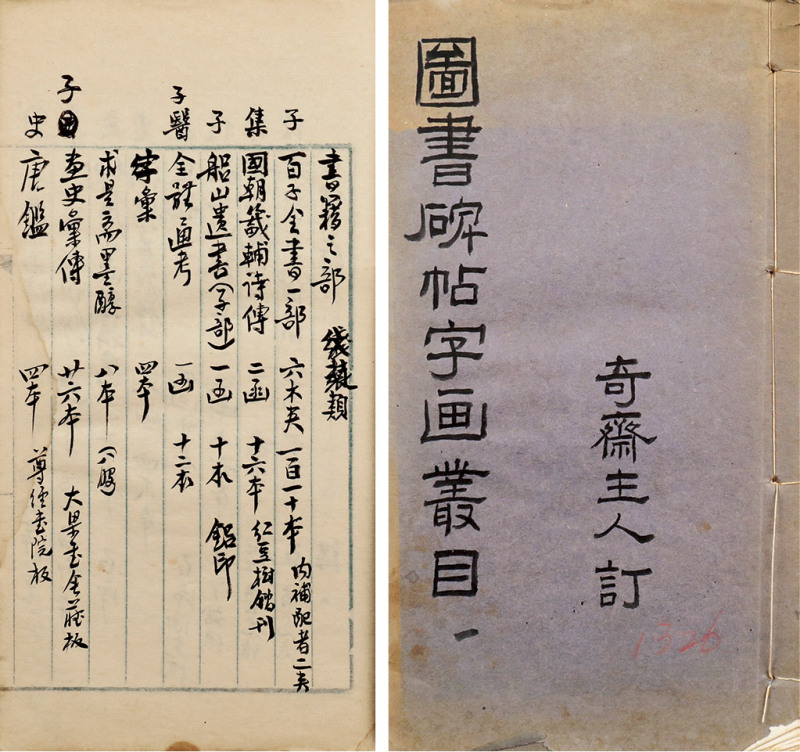 圖書碑帖字画叢目 一
奇齋主人訂
1326
書籍之部 綫裝類
子 百子全書一部 六木夾 一百一十本 內補配者二夾
集 國朝畿輔詩傳 二函 十六本 紅豆樹館刊
子 船山遺書（子部） 一函 十本 鉛印
子醫 全體通考 一函 十二本
字彙 四本
求是齋墨醇 八本
子 画史彙傳 廿六本
史 唐鑑 四本 尊經書院板